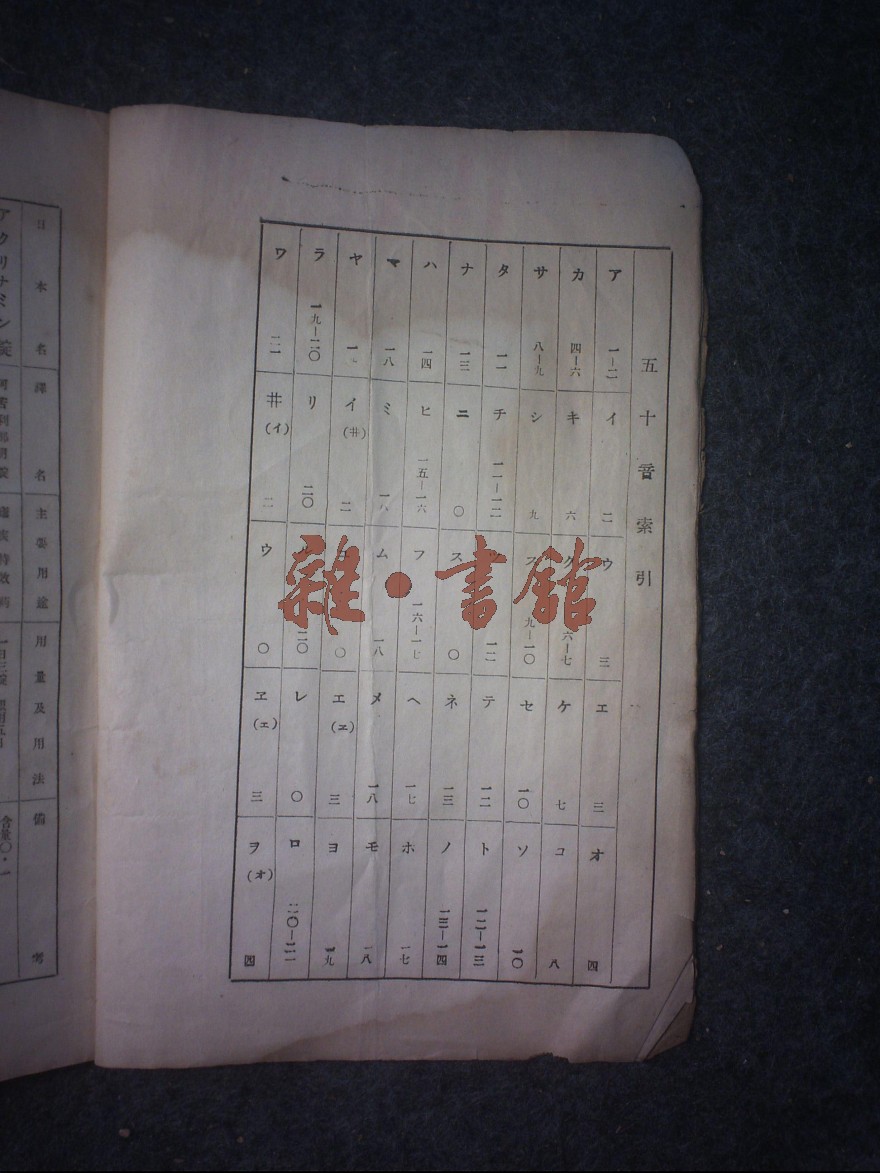 五十音索引
ア 一—二 イ 二 ウ 三 エ 三 オ 四
カ 四—六 キ 六 ク 六—七 ケ 七 コ 八
サ 八—九 シ 九 ス 九—一〇 セ 一〇 ソ 一〇
タ 一一 チ 一一—一二 一二 テ 一二 ト 一二—一三
ナ 一三 ニ 〇 ス 〇 ネ 一三 ノ 一三—一四
ハ 一四 ヒ 一五—一六 フ 一六—一七 ヘ 一七 ホ 一七
マ 一八 ミ 一八 ム 一八 メ 一八 モ 一八
ヤ 一 イ(井) 二 〇 エ(ヱ) 三 ヨ 一九
ラ 一九—二〇 リ 二〇 二〇 レ 〇 ロ 二〇—二一
ワ 二一 井(イ) 二 ウ 〇 ヱ(エ) 三 ヲ(オ) 四
日本名 譯名 主要用途 用量及用法 備考
アクリナミン錠
含量〇・一
雜·書館